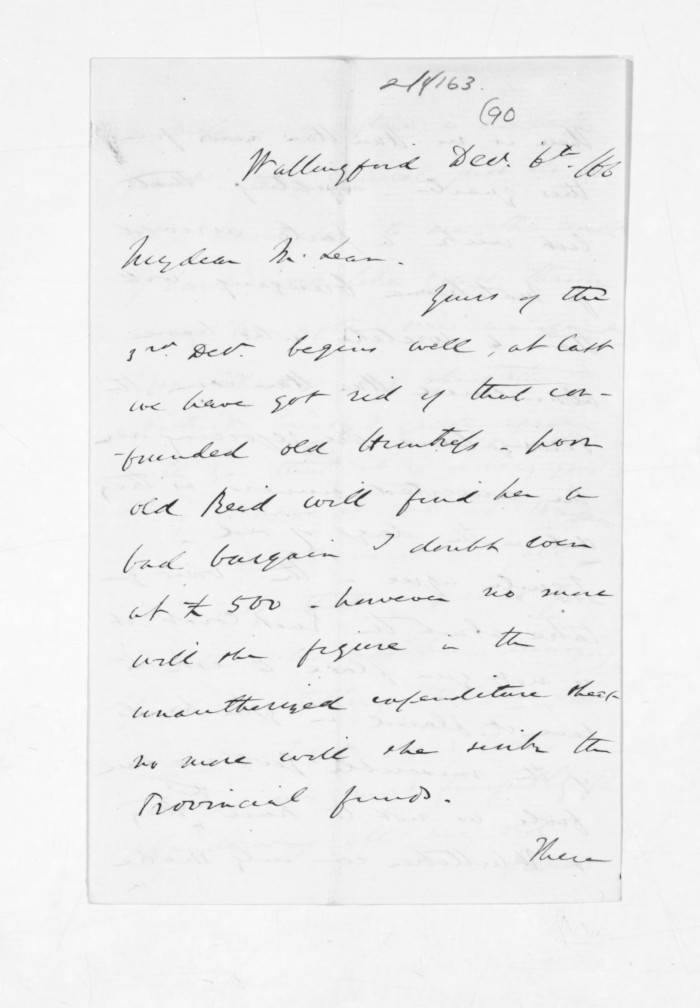 2/4/163.
(90
Wallingford Decr. 6th /66
My dear McLean.
Yours of the
3rd. Decr. begins well, at last
we have got rid of that con-
-founded old Huntress - poor
old Reid will find her a
bad bargain I doubt even
at £500 - however no more
will she figure in the
unauthorized expenditure sheet
no more will she swike the
Provincial funds.
There